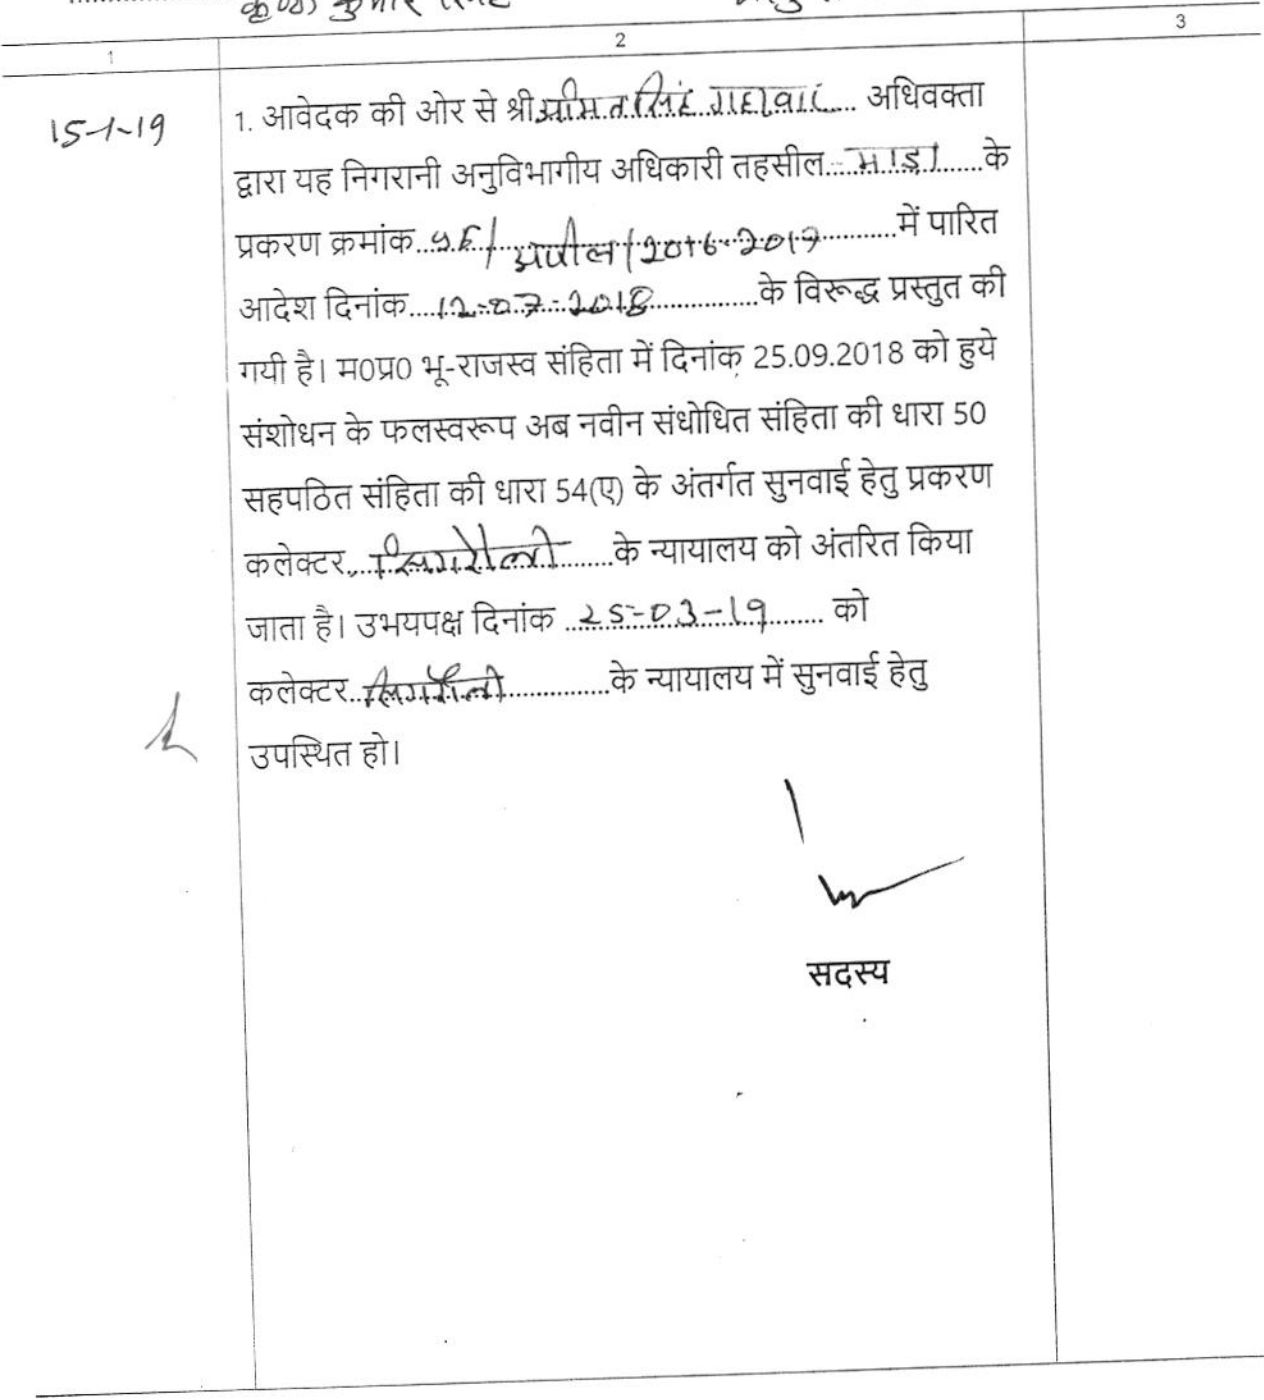 कुमार सिंह
1 2 3
15-1-19
1. आवेदक की ओर से श्री सिंह गहरवार अधिवक्ता
द्वारा यह निगरानी अनुविभागीय अधिकारी तहसील.....माडा......के
प्रकरण क्रमांक.. /अपील/2016-2017..........में पारित
आदेश दिनांक....12-07-2018.............के विरूद्ध प्रस्तुत की
गयी है। म0प्र0 भू-राजस्व संहिता में दिनांक 25.09.2018 को हुये
संशोधन के फलस्वरूप अब नवीन संधोधित संहिता की धारा 50
सहपठित संहिता की धारा 54(ए) के अंतर्गत सुनवाई हेतु प्रकरण
कलेक्टर....सिंगरौली......के न्यायालय को अंतरित किया
जाता है। उभयपक्ष दिनांक ..25-03-19....... को
कलेक्टर..सिंगरौली.............के न्यायालय में सुनवाई हेतु
उपस्थित हो।
सदस्य